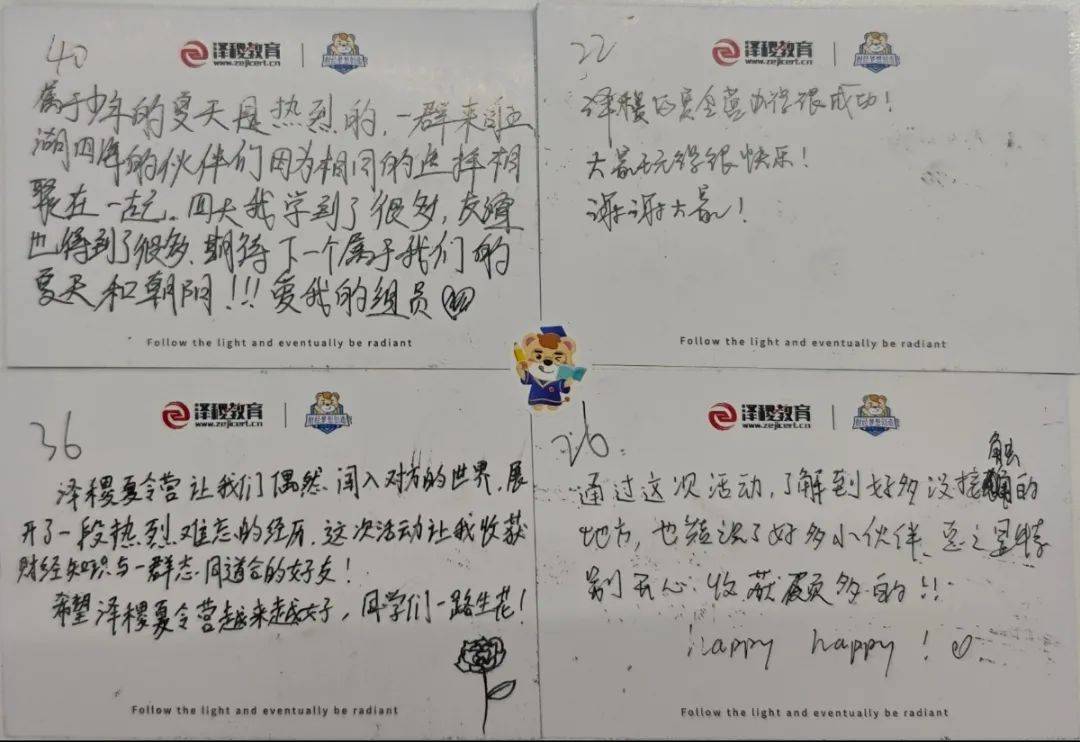 40
泽稷教育
www.zejicert.cn
财经梦想创造营
属于少年的夏天是热烈的,一群来自五
湖四海的伙伴们因为相同的选择相
聚在一起。四天我学到了很多,友谊
也得到了很多、期待下一个属于我们的
夏天和朝阳!!!爱我的组员
Follow the light and eventually be radiant
22
泽稷教育
www.zejicert.cn
泽稷的夏令营办得很成功!
大家玩得很快乐!
谢谢大家!
Follow the light and eventually be radiant
36
泽稷教育
www.zejicert.cn
财经梦想创造营
泽稷夏令营让我们偶然闯入对方的世界,展
开了一段热烈难忘的经历。这次活动让我收获
财经知识与一群志同道合的好友!
希望泽稷夏令营越来越好,同学们一路生花!
Follow the light and eventually be radiant
26.
泽稷教育
www.zejicert.cn
财经梦想创造营
通过这次活动,了解到好多没接触的
地方,也结识了好多小伙伴、总之是特
别开心,收获颇多的!!
happy happy!
Follow the light and eventually be radiant